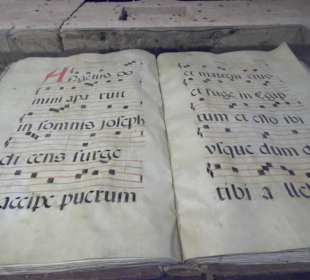 Angelus do
mini apa ruit
in somnis joseph
di cens surge
accipe puerum
et matrem eius
et fuge in Egip
tum et esto ibi
vsque dum d
tibi a lle